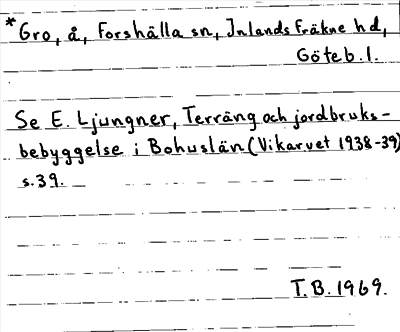 *Gro, å, Forshälla sn, Inlands Fräkne hd,
Göteb. l.
Se E. Ljungner, Terräng och jordbruks-
bebyggelse i Bohuslän (Vikarvet 1938-39)
s. 39.
T.B. 1969.